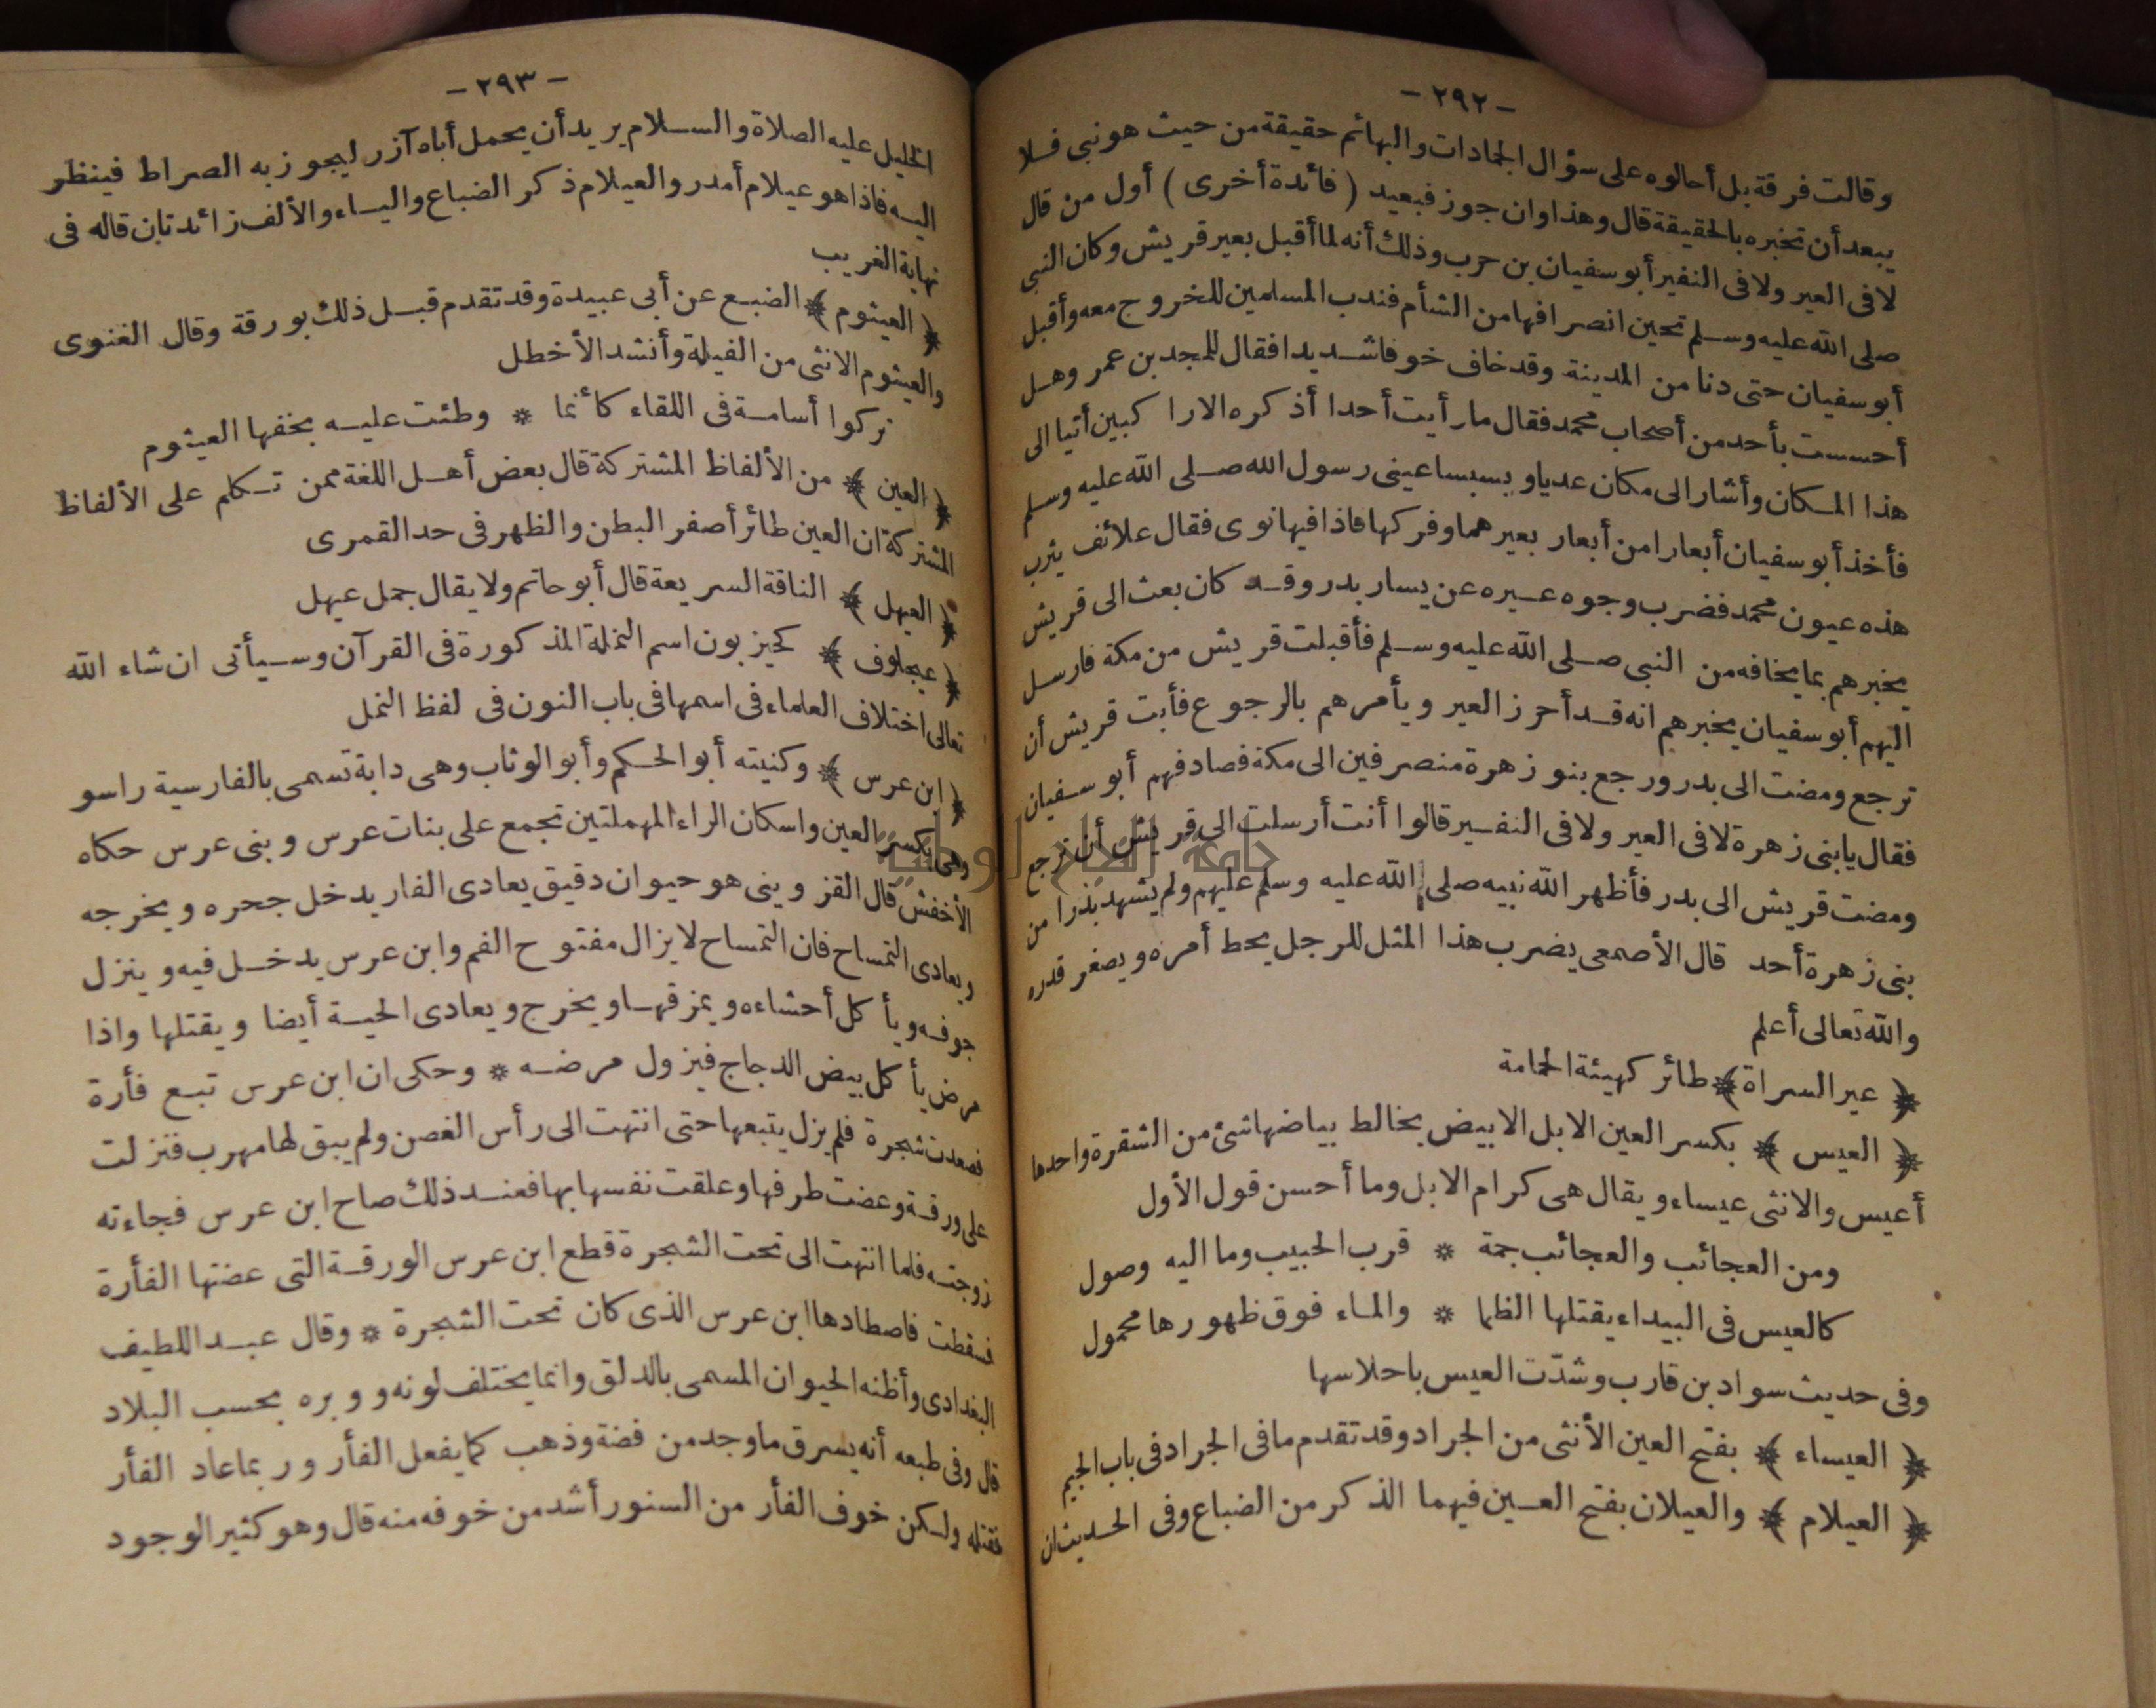 - ٢٩٢ -
وقالت فرقة بل أحالوه على سؤال الجمادات والبهائم حقيقة من حيث هو نبى فلا
يبعد أن تخبره بالحقيقة قال وهذا وان جوز فبعيد (فائدة أخرى) أول من قال
لا فى العير ولا فى النفير أبو سفيان بن حرب وذلك أنه لما أقبل بعير قريش وكان النبى
صلى الله عليه وسلم تحين انصرافها من الشأم فندب المسلمين للخروج معه وأقبل
أبو سفيان حتى دنا من المدينة وقد خاف خوفا شديدا فقال للمجد بن عمر وهل
أحسست بأحد من أصحاب محمد فقال ما رأيت أحدا أذكره الا را كبين أتيا الى
هذا المكان وأشار الى مكان عديا وبسبسا عينى رسول الله صلى الله عليه وسلم
فأخذ أبو سفيان أبعارا من أبعار بعيرهما وفركها فاذا فيها نوى فقال علائف يثرب
هذه عيون محمد فضرب وجوه عيره عن يسار بدر وقد كان بعث الى قريش
يخبرهم بما يخافه من النبى صلى الله عليه وسلم فأقبلت قريش من مكة فارسل
اليهم أبو سفيان يخبرهم انه قد أحرز العير ويأمرهم بالرجوع فأبت قريش أن
ترجع ومضت الى بدر ورجع بنو زهرة منصرفين الى مكة فصادفهم أبو سفيان
فقال يا بنى زهرة لا فى العير ولا فى النفير قالوا أنت أرسلت الى قريش أن ترجع
ومضت قريش الى بدر فأظهر الله نبيه صلى الله عليه وسلم عليهم ولم يشهد بدرا من
بنى زهرة أحد قال الأصمعى يضرب هذا المثل للرجل يحط أمره ويصغر قدره
والله تعالى أعلم
﴿ عير السراة ﴾ طائر كهيئة الحمامة
﴿ العيس ﴾ بكسر العين الابل الابيض يخالط بياضها شئ من الشقرة واحدها
أعيس والانثى عيساء ويقال هى كرام الابل وما أحسن قول الأول
ومن العجائب والعجائب جمة * قرب الحبيب وما اليه وصول
كالعيس فى البيداء يقتلها الظما * والماء فوق ظهورها محمول
وفى حديث سواد بن قارب وشدّت العيس باحلاسها
﴿ العيساء ﴾ بفتح العين الأنثى من الجراد وقد تقدم ما فى الجراد فى باب الجيم
﴿ العيلام ﴾ والعيلان بفتح العين فيهما الذكر من الضباع وفى الحديث ان
- ٢٩٣ -
الخليل عليه الصلاة والسلام يريد أن يحمل أباه آزر ليجوز به الصراط فينظر
اليه فاذا هو عيلام أمدر والعيلام ذكر الضباع والياء والألف زائدتان قاله فى
نهاية الغريب
﴿ العيثوم ﴾ الضبع عن أبى عبيدة وقد تقدم قبل ذلك بورقة وقال الغنوى
والعيثوم الانثى من الفيلة وأنشد الأخطل
تركوا أسامة فى اللقاء كأنما * وطئت عليه بخفها العيثوم
﴿ العين ﴾ من الألفاظ المشتركة قال بعض أهل اللغة ممن تكلم على الألفاظ
المشتركة ان العين طائر أصفر البطن والظهر فى حد القمرى
﴿ العيهل ﴾ الناقة السريعة قال أبو حاتم ولا يقال جمل عيهل
﴿ عيجلوف ﴾ كحيزبون اسم النملة المذكورة فى القرآن وسيأتى ان شاء الله
تعالى اختلاف العلماء فى اسمها فى باب النون فى لفظ النمل
﴿ ابن عرس ﴾ وكنيته أبو الحكم وأبو الوثاب وهى دابة تسمى بالفارسية راسو
وهى بكسر العين واسكان الراء المهملتين تجمع على بنات عرس وبنى عرس حكاه
الأخفش قال القزوينى هو حيوان دقيق يعادى الفار يدخل جحره ويخرجه
ويعادى التمساح فان التمساح لا يزال مفتوح الفم وابن عرس يدخل فيه وينزل
جوفه ويأكل أحشاءه ويمزقها ويخرج ويعادى الحية أيضا ويقتلها واذا
مرض يأكل بيض الدجاج فيزول مرضه * وحكى ان ابن عرس تبع فأرة
فصعدت شجرة فلم يزل يتبعها حتى انتهت الى رأس الغصن ولم يبق لها مهرب فنزلت
على ورقة وعضت طرفها وعلقت نفسها بها فعند ذلك صاح ابن عرس فجاءته
زوجته فلما انتهت الى تحت الشجرة قطع ابن عرس الورقة التى عضتها الفأرة
فسقطت فاصطادها ابن عرس الذى كان تحت الشجرة * وقال عبد اللطيف
البغدادى وأظنه الحيوان المسمى بالدلق وانما يختلف لونه ووبره بحسب البلاد
قال وفى طبعه أنه يسرق ما وجد من فضة وذهب كما يفعل الفأر وربما عاد الفأر
فقتله ولكن خوف الفأر من السنور أشد من خوفه منه قال وهو كثير الوجود
جامعة النجاح الوطنية